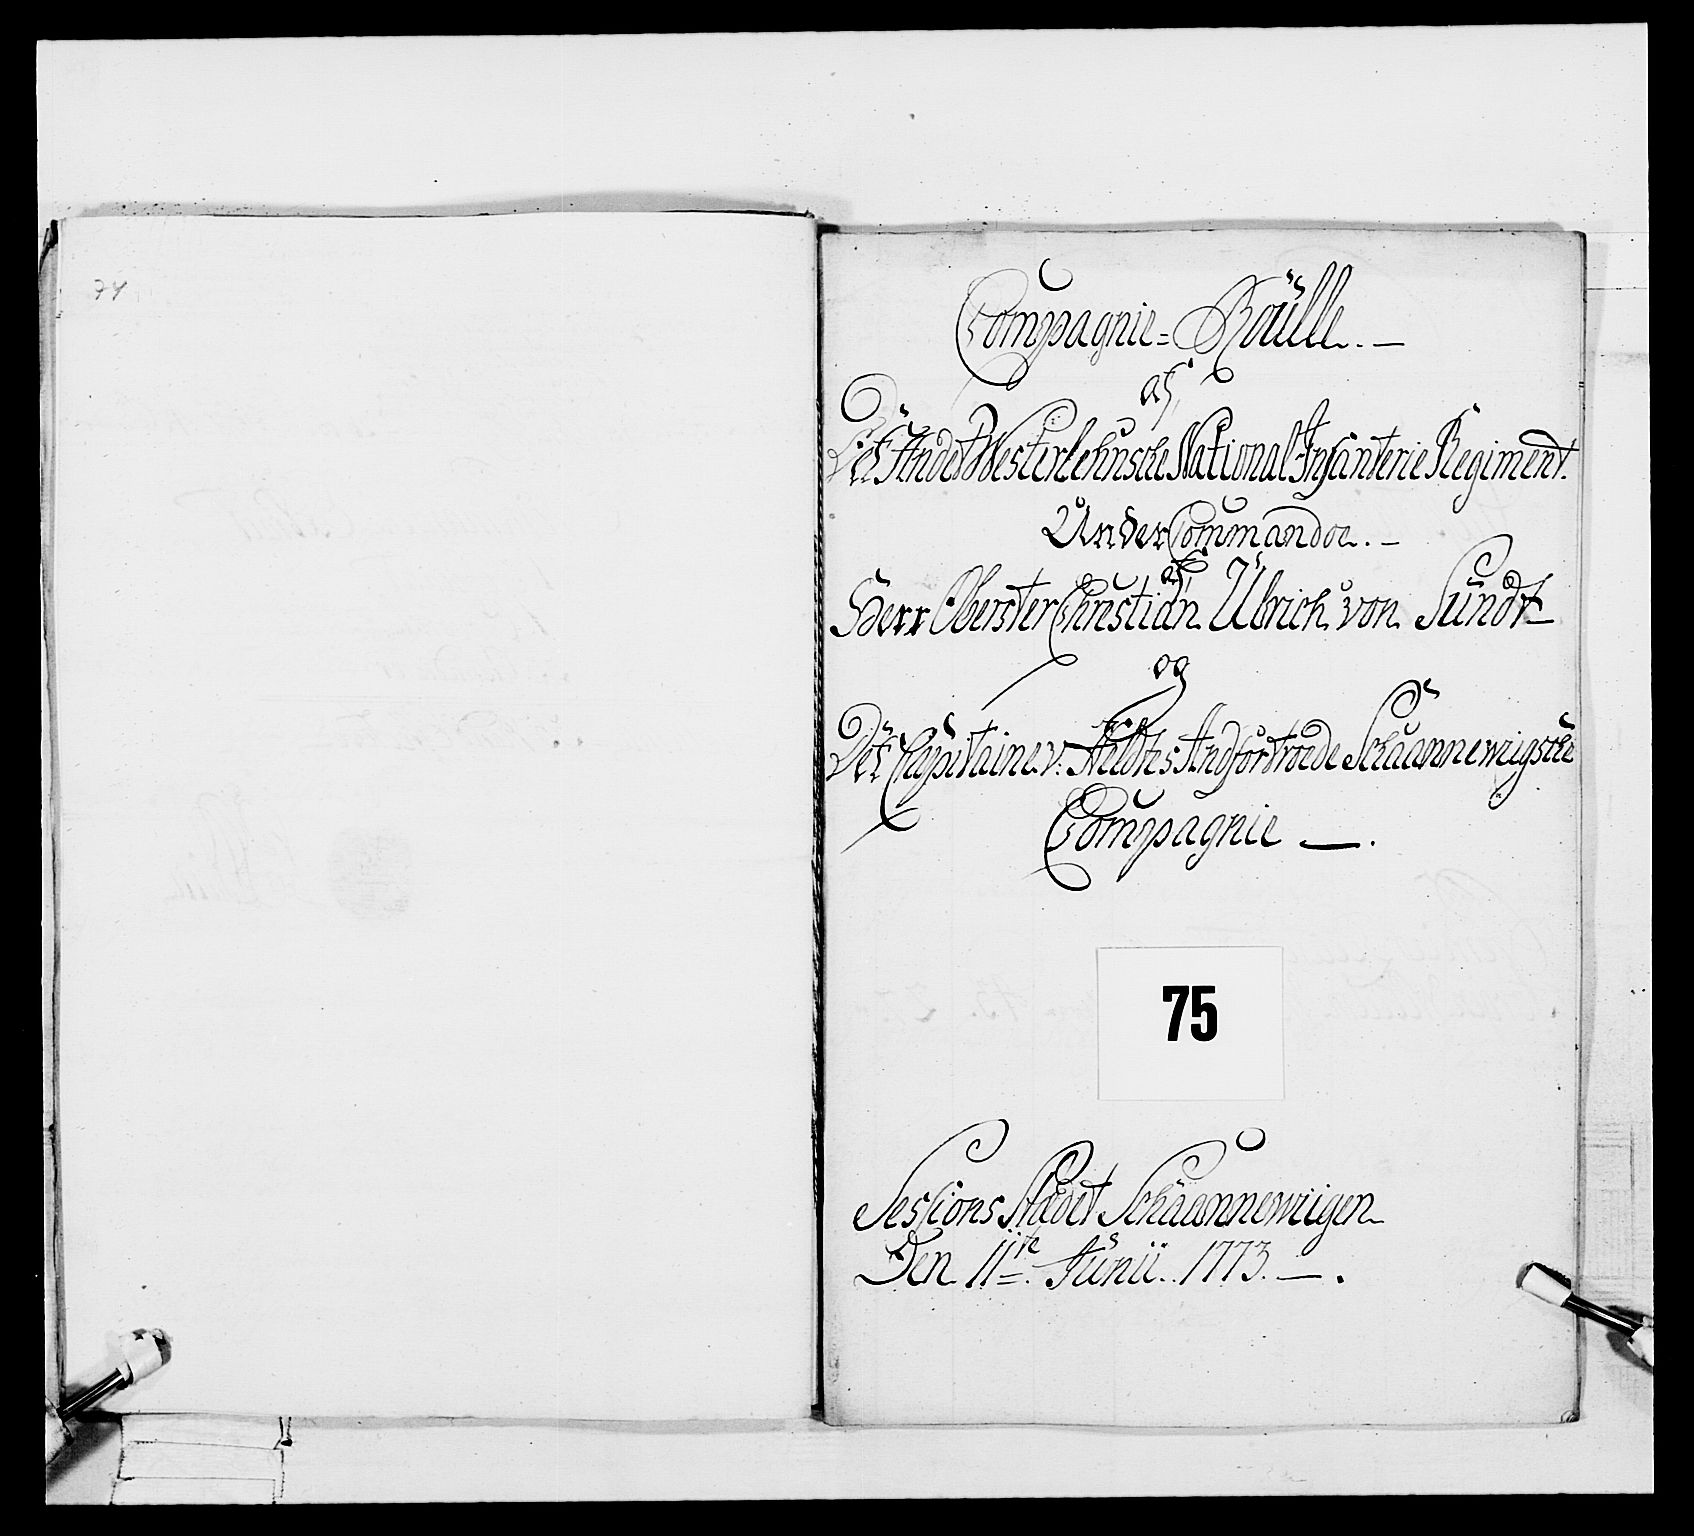 74
Compagnie=Roülle. —
af
Det Andet Westerlehnsche National Infanterie Regiment.
Under Commandoe. —
af
Herr Oberster Christian Ülrich von Sündt
og
Det Capitaine v: Heldtes Andfortroede Schaannewiigsche
Compagnie — .
75
Sessions Stædet Schaannewiigen
Den 11te Junii. 1773. — .